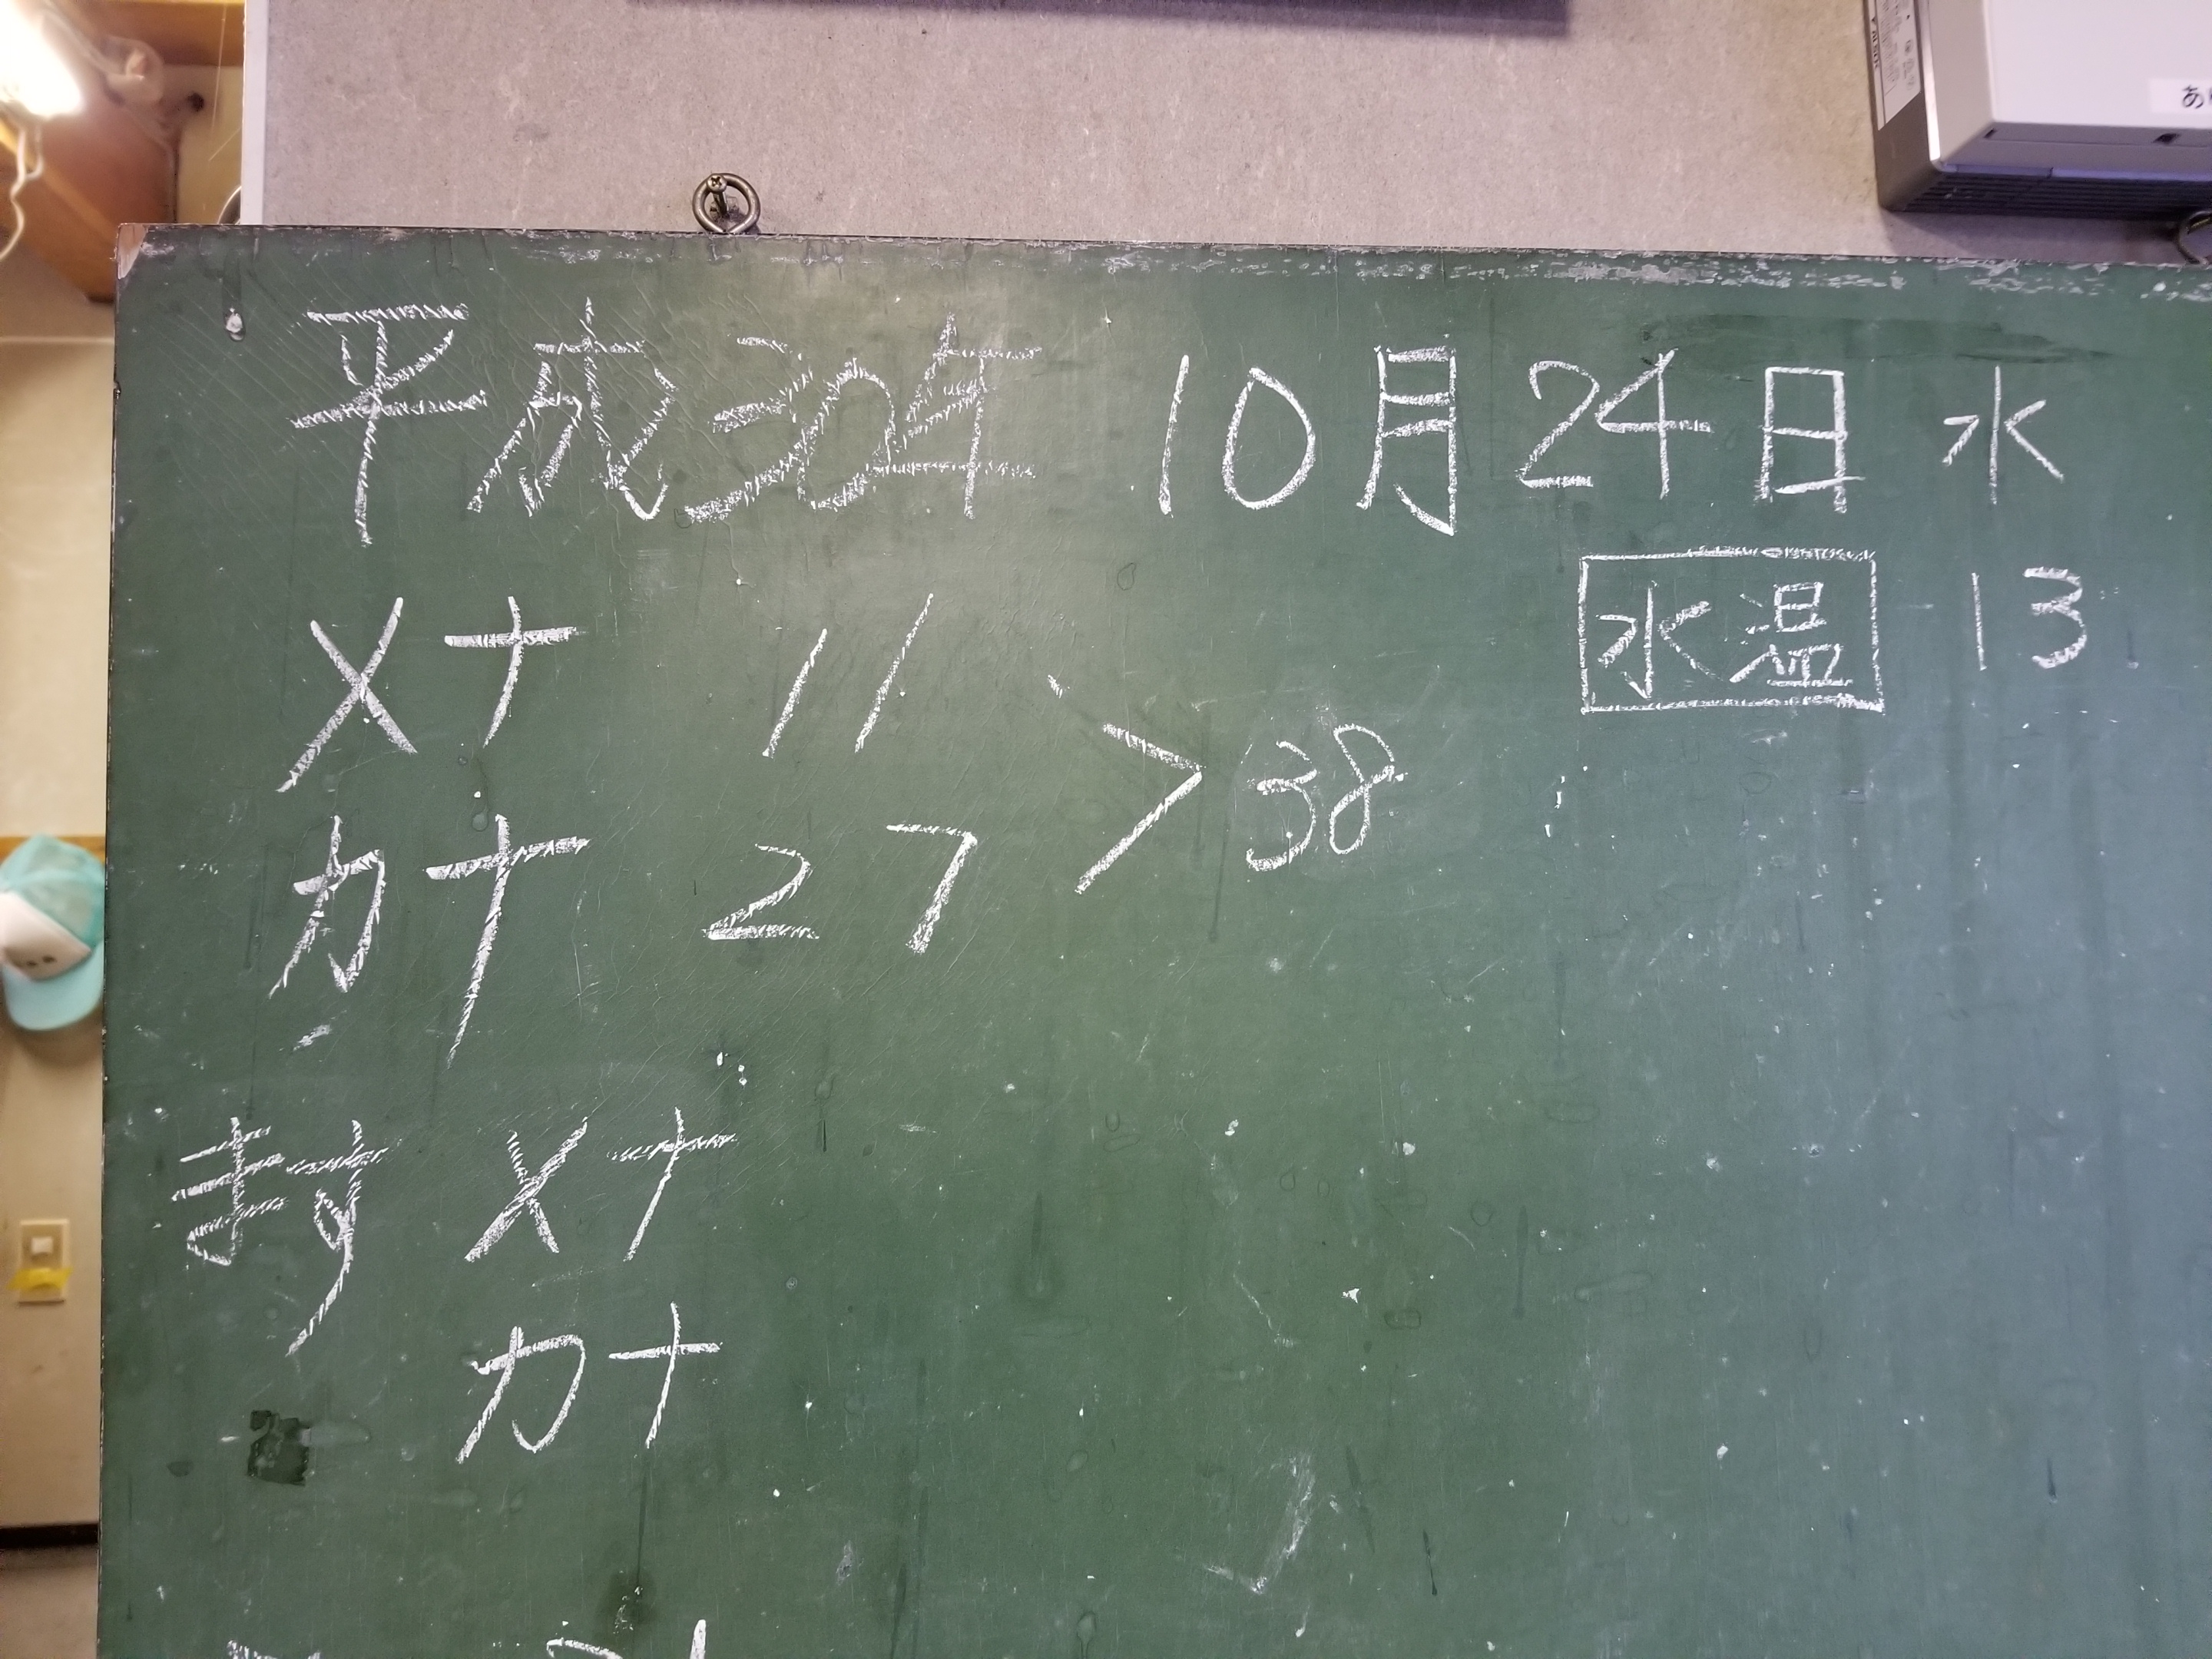 平成30年 10月24日 水
水温 13
メナ 11
カナ 27 > 38
ます メナ
カナ